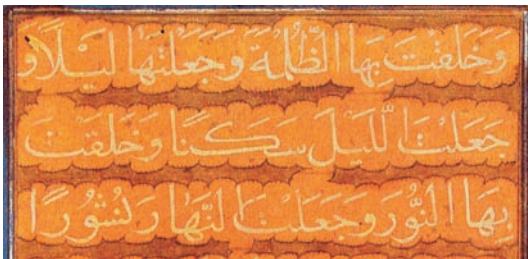 وَخَلَقْتَ بِهَا الظُّلْمَةَ وَجَعَلْتَهَا لَيْلًا وَ
جَعَلْتَ اللَّيْلَ سَكَنًا وَخَلَقْتَ
بِهَا النُّورَ وَجَعَلْتَ النَّهَارَ نُشُورًا